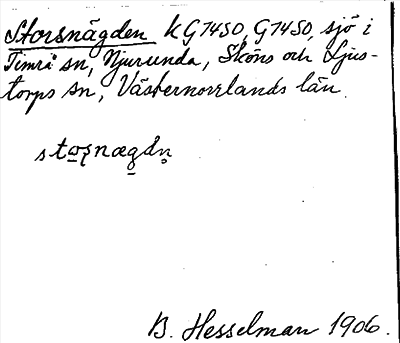 Storsnägden k G74SO, G74SO, sjö i
Timrå sn, Njurunda, Sköns och Ljus-
torps sn, Västernorrlands län.
B. Hesselman 1906.